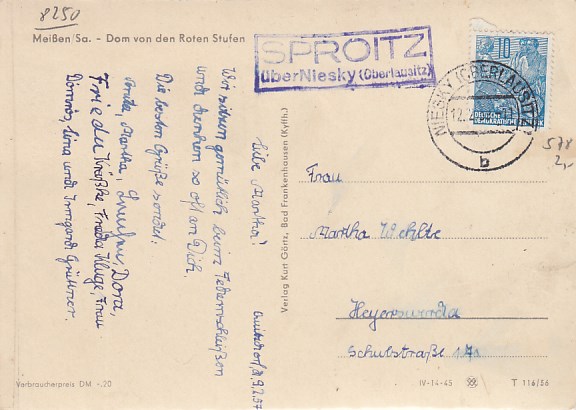 8250
Meißen/Sa. - Dom von den Roten Stufen
SPROITZ
über Niesky (Oberlausitz)
10
DEUTSCHE
DEMOKRATISCHE REPUBLIK
NIESKY (OBERLAUSITZ)
12.2.
b
578
2,-
Liebe Martha!
Wir sitzen gemütlich beim Federnschleißen
und denken so oft an Dich.
Die besten Grüße sendet
Martha, Dora,
Frieda Kluge, Frau
Lina und Irmgard
9.2.57
Verlag Kurt Görtz, Bad Frankenhausen (Kyffh.)
Frau
Martha Wehlte
Hoyerswerda
Schulstraße
Verbraucherpreis DM -.20
IV-14-45
T 116/56